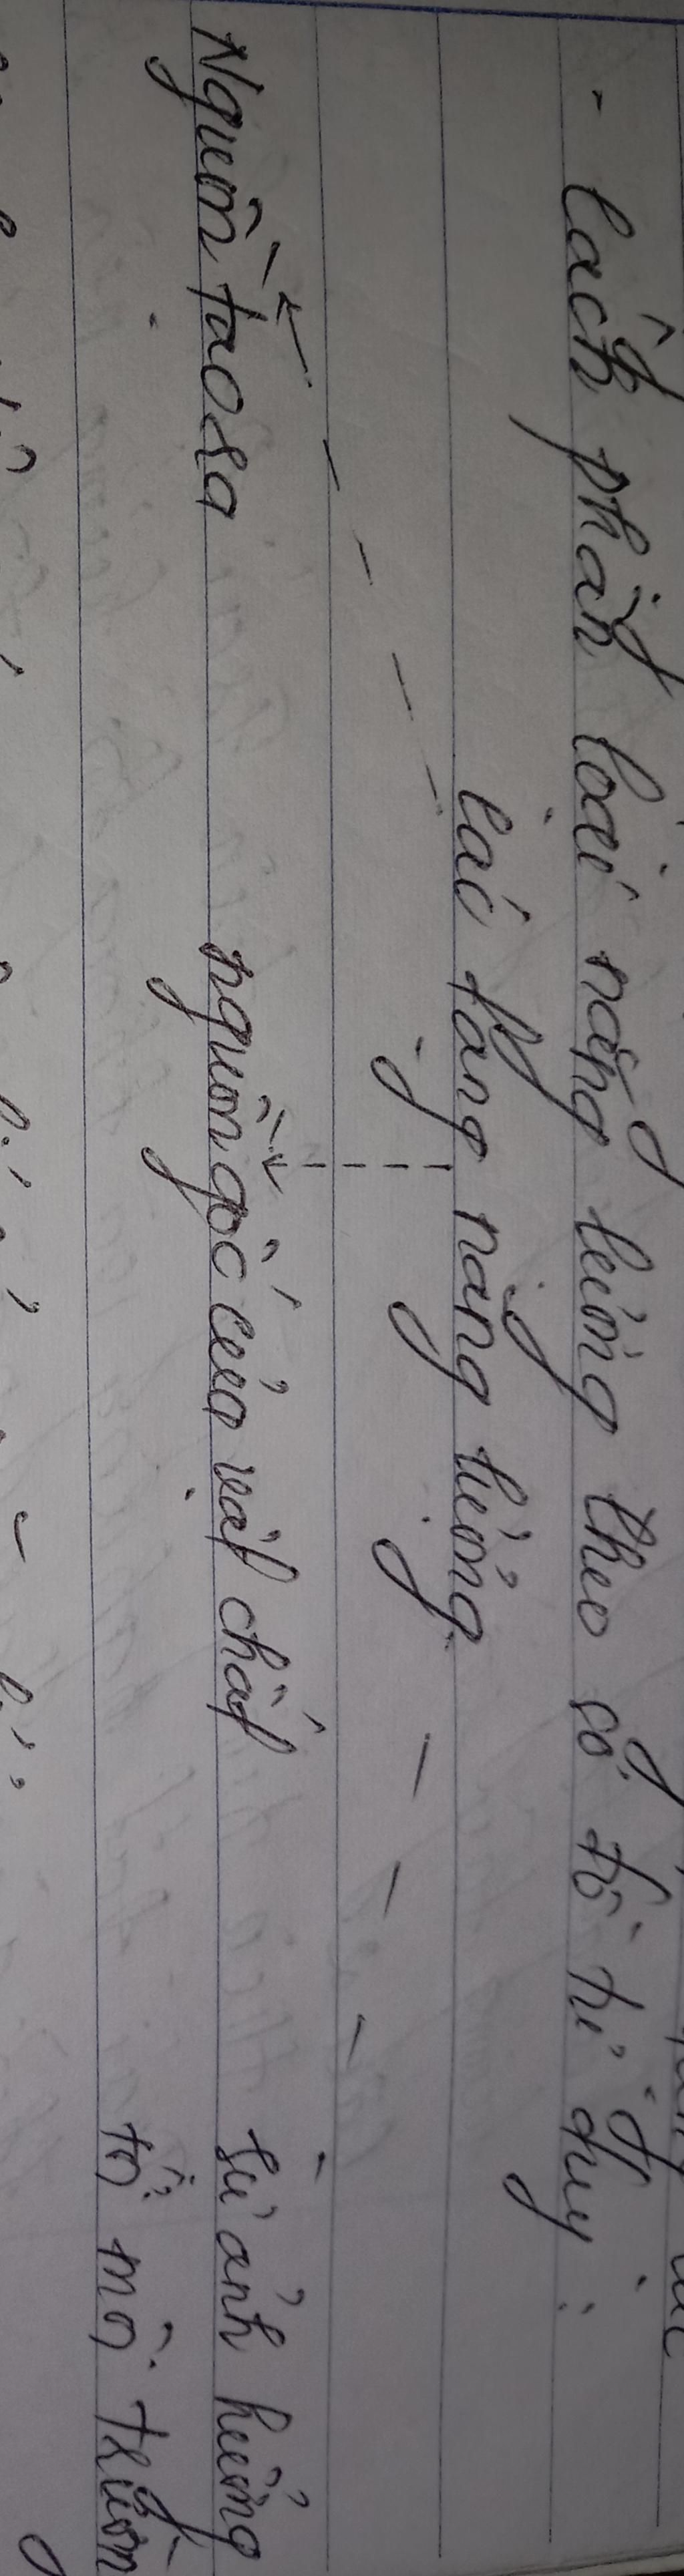 - Cách phân loại năng lượng theo sơ đồ tư duy:
các dạng năng lượng
Nguồn tạo ra nguồn gốc của vật chất sự ảnh hưởng
tới môi trườn